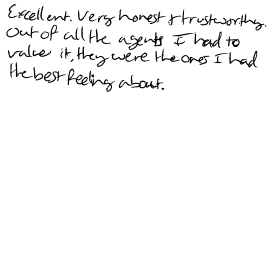 Excellent. Very honest & trustworthy.
Out of all the agents I had to
value it, they were the ones I had
the best feeling about.